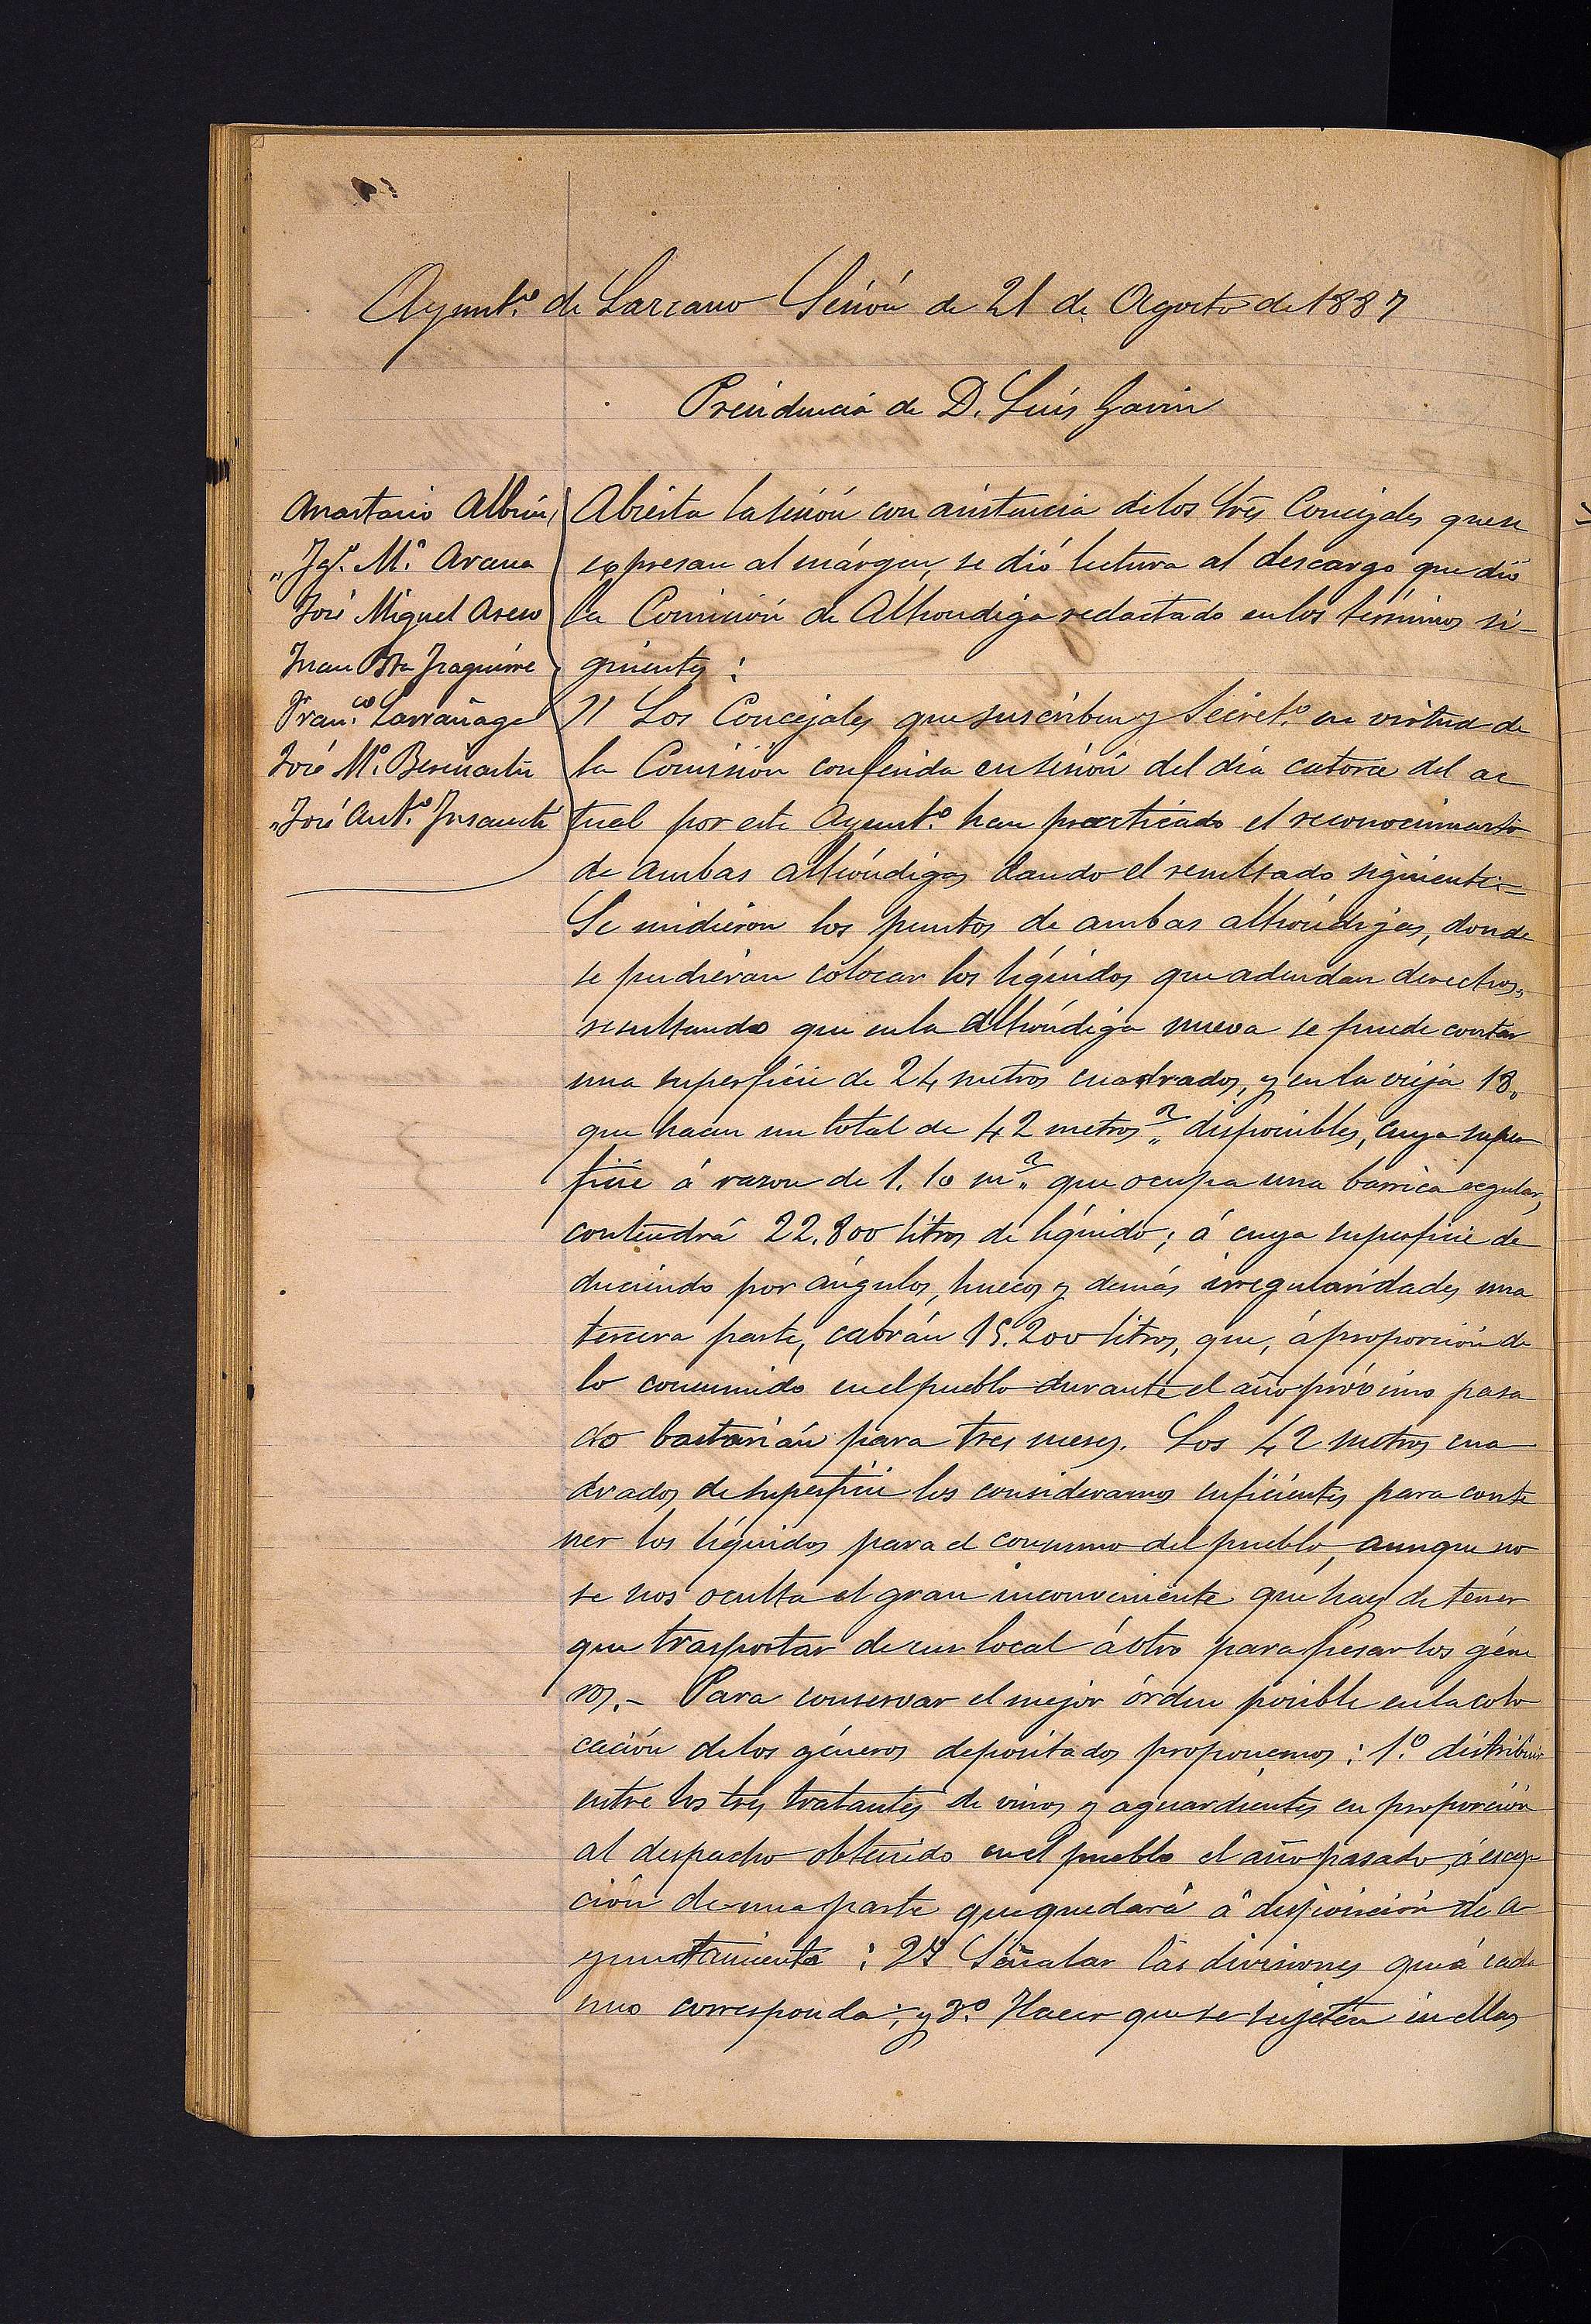 Ayunt.º de Lazcano Sesión de 21 de Agosto de 1887
Presidencia de D. Luis Gavin
Anastasio Albisu
" Jg.º M.ª Arana
José Miguel Aseco
Juan Bta Iraguirre
Fran.co Larrañaga
José M.ª Berinartu
" José Ant.º Insausti
Abierta la sesión con asistencia de los Srês Concejales que se
expresan al márgen, se dió lectura al descargo que dió
la Comisión de Alhondiga redactado en los términos si-
guientes:
" Los Concejales que suscriben y Secret.º en virtud de
la Comisión conferida en sesión del día catorce del ac
tual por este Ayunt.º han practicado el reconocimiento
de ambas alhóndigas dando el resultado siguiente=
Se midieron los puntos de ambas alhóndigas, donde
se pudieran colocar los líquidos que adeudan derechos,
resultando que en la alhóndiga nueva se puede contar
una superficie de 24 metros cuadrados, y en la vieja 18,
que hacen un total de 42 metros 2 disponibles, cuya super
ficie á razon de 1.10 m2 que ocupa una barrica regular,
contendrá 22.800 litros de líquido; á cuya superficie de
duciendo por ángulos, huecos y demás irregularidades una
tercera parte, cabrán 15.200 litros, que, á proporción de
lo consumido en el pueblo durante el año próximo pasa
do bastarían para tres meses. Los 42 metros cua
drados de superficie los consideramos suficientes para conte
ner los líquidos para el consumo del pueblo, aunque no
se nos oculta el gran inconveniente que hay de tener
que trasportar de un local á otro para pesar los géne
ros.- Para conservar el mejor órden posible en la colo
cación de los géneros depositados proponemos: 1.º distribuir
entre los tres tratantes de vinos y aguardientes en proporción
al despacho obtenido en el pueblo el año pasado, á escep
ción de una parte que quedará á disposición de a
yuntamiento: 2º Señalar las divisiones que á cada
uno corresponda; y 3.º Hacer que se sujeten en ellas